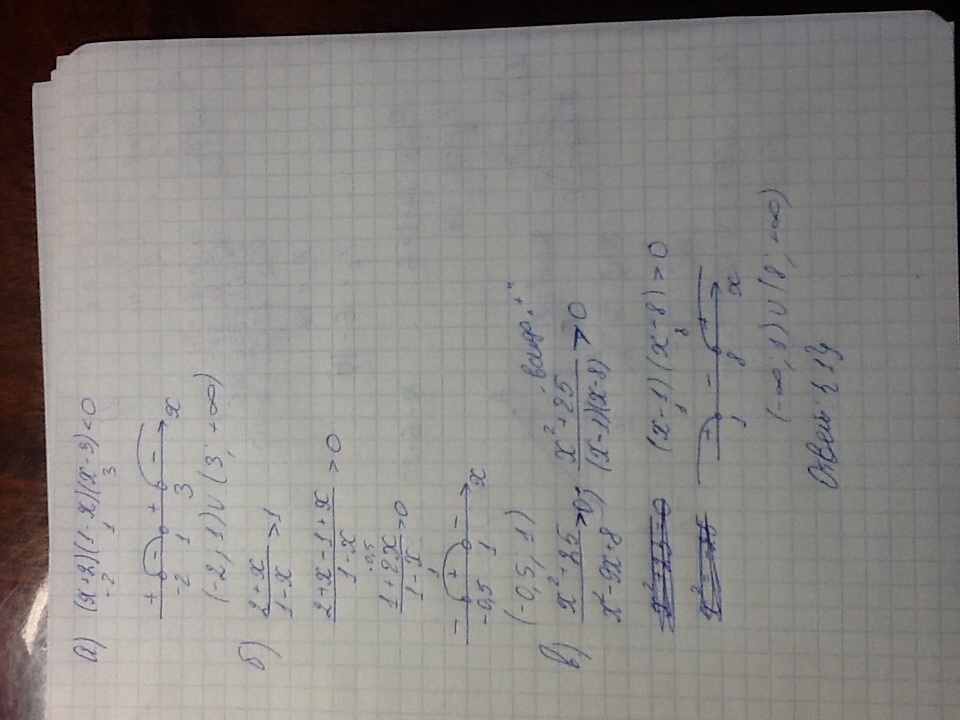 а) (x+2)(1-x)(x-3)<0
-2 1 3
+ - + -
-2 1 3 x
(-2; 1)∪(3; +∞)
б) 2+x / 1-x >1
2+x-1+x / 1-x >0
-0,5
1+2x / 1-x >0
1
- + -
-0,5 1 x
(-0,5; 1)
в) x²+25 / x²-9x+8 >0; x²+25 / (x-1)(x-8) >0
(x-1)(x-8)>0
1 8
+ - +
1 8 x
(-∞; 1)∪(8; +∞)
Ответ: